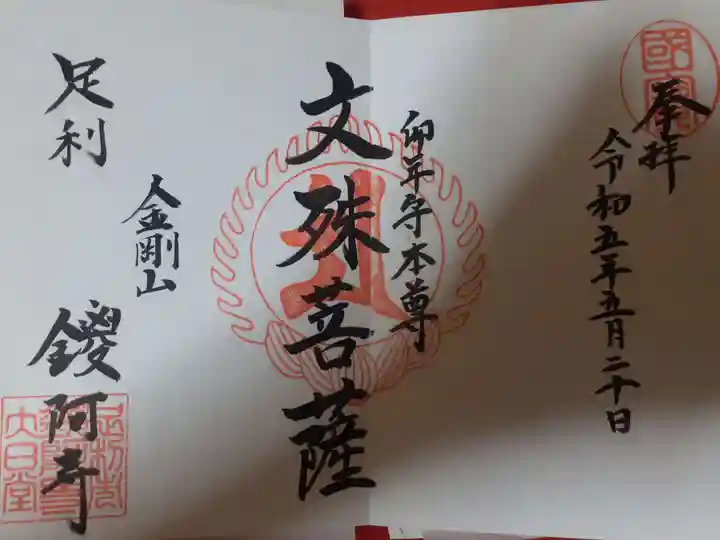 奉拝
令和五年五月二十日
卯年守本尊
文殊菩薩
足利
金剛山
鑁阿寺
大日堂